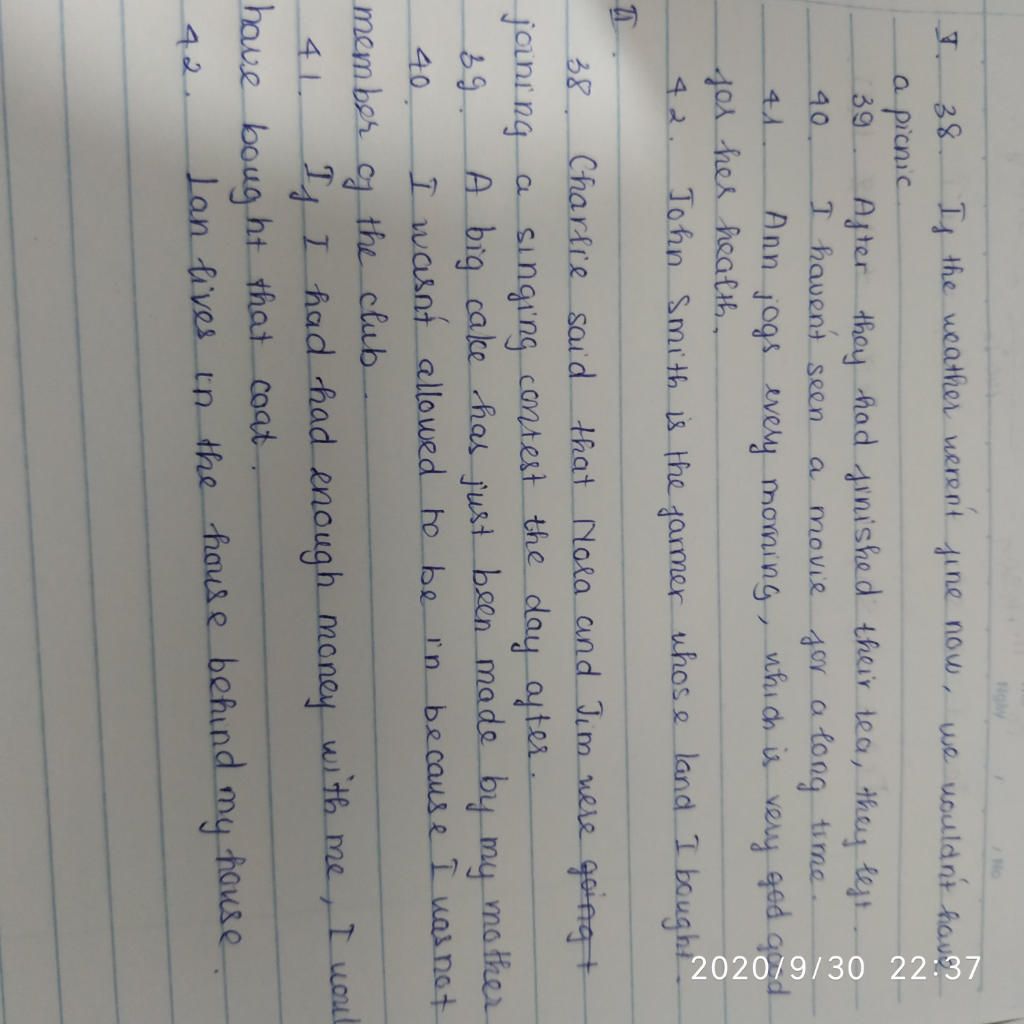 I. 38. If the weather weren't fine now, we wouldn't have
a picnic
39. After they had finished their tea, they left.
40. I haven't seen a movie for a long time.
41. Ann jogs every morning, which is very god good
for her health.
42. John Smith is the farmer whose land I bought.
II.
38. Charlie said that Nora and Jim were going t
joining a singing contest the day after.
39. A big cake has just been made by my mother
40. I wasn't allowed to be in because I was not
member of the club.
41. If I had had enough money with me, I woul
have bought that coat.
42. Ian lives in the house behind my house.
Ngày / / No
2020/9/30 22:37